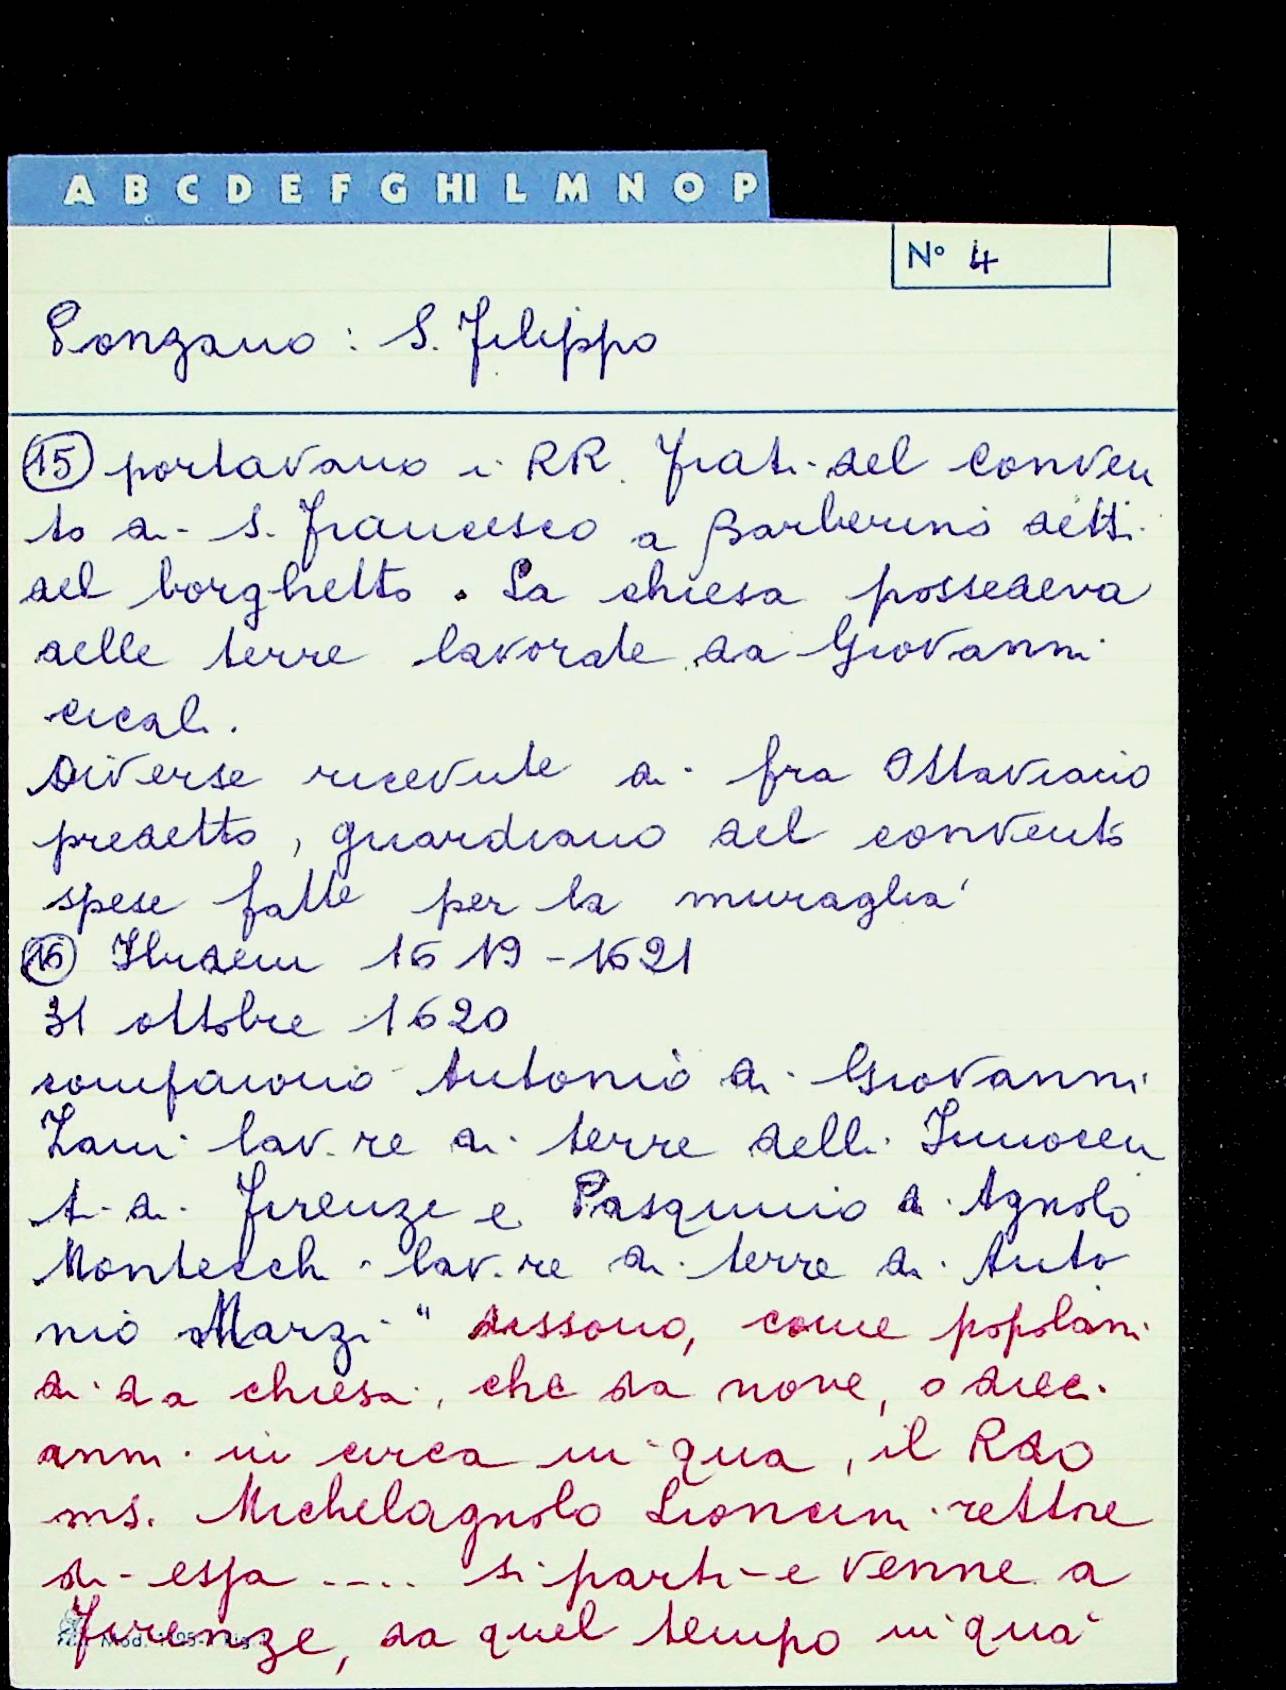 A B C D E F G HI L M N O P
N° 4
Ponzano : S. Filippo
15 portavano i RR. Frati del conven
to di S. Francesco a Barberino detti
del borghetto. La chiesa possedeva
delle terre lavorate da Giovanni
cicali.
Diverse ricevute di fra Ottaviano
predetto, guardiano del convento
spese fatte per la muraglia
16 Ibidem 1619-1621
31 ottobre 1620
compaiono Antonio di Giovanni
Zani lav.re di terre delli Innocen
ti di Firenze e Pasquino di Agnolo
Montecchi lav.re di terre di Anto
nio Marzi " dissono, come popolani
di da chiesa, che da nove, o dieci
anni in circa in qua, il Rdo
ms. Michelagnolo Lioncini rettore
di essa .... si partì e venne a
Firenze, da quel tempo in qua